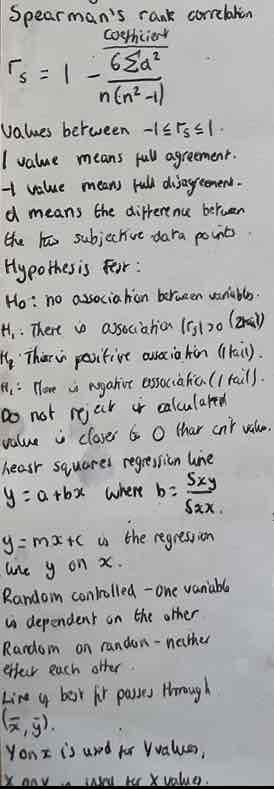 Spearman's rank correlation
coefficient
rs = 1 - 6Σd² / n(n²-1)
Values between -1≤rs≤1.
1 value means full agreement.
-1 value means full disagreement.
d means the difference between
the two subjective data points.
Hypothesis Test:
H₀: no association between variables.
H₁: There is association |rs|>0 (2tail)
H₁: There is positive association (1 tail).
H₁: There is negative association (1 tail).
Do not reject if calculated
value is closer to 0 than crit value.
Least squares regression line
y = a+bx where b = Sxy / Sxx.
y = mx+c is the regression
line y on x.
Random controlled - one variable
is dependent on the other.
Random on random - neither
effect each other.
Line of best fit passes through
(x̄, ȳ).
Y on x is used for Y values,
X on Y is used for X values.